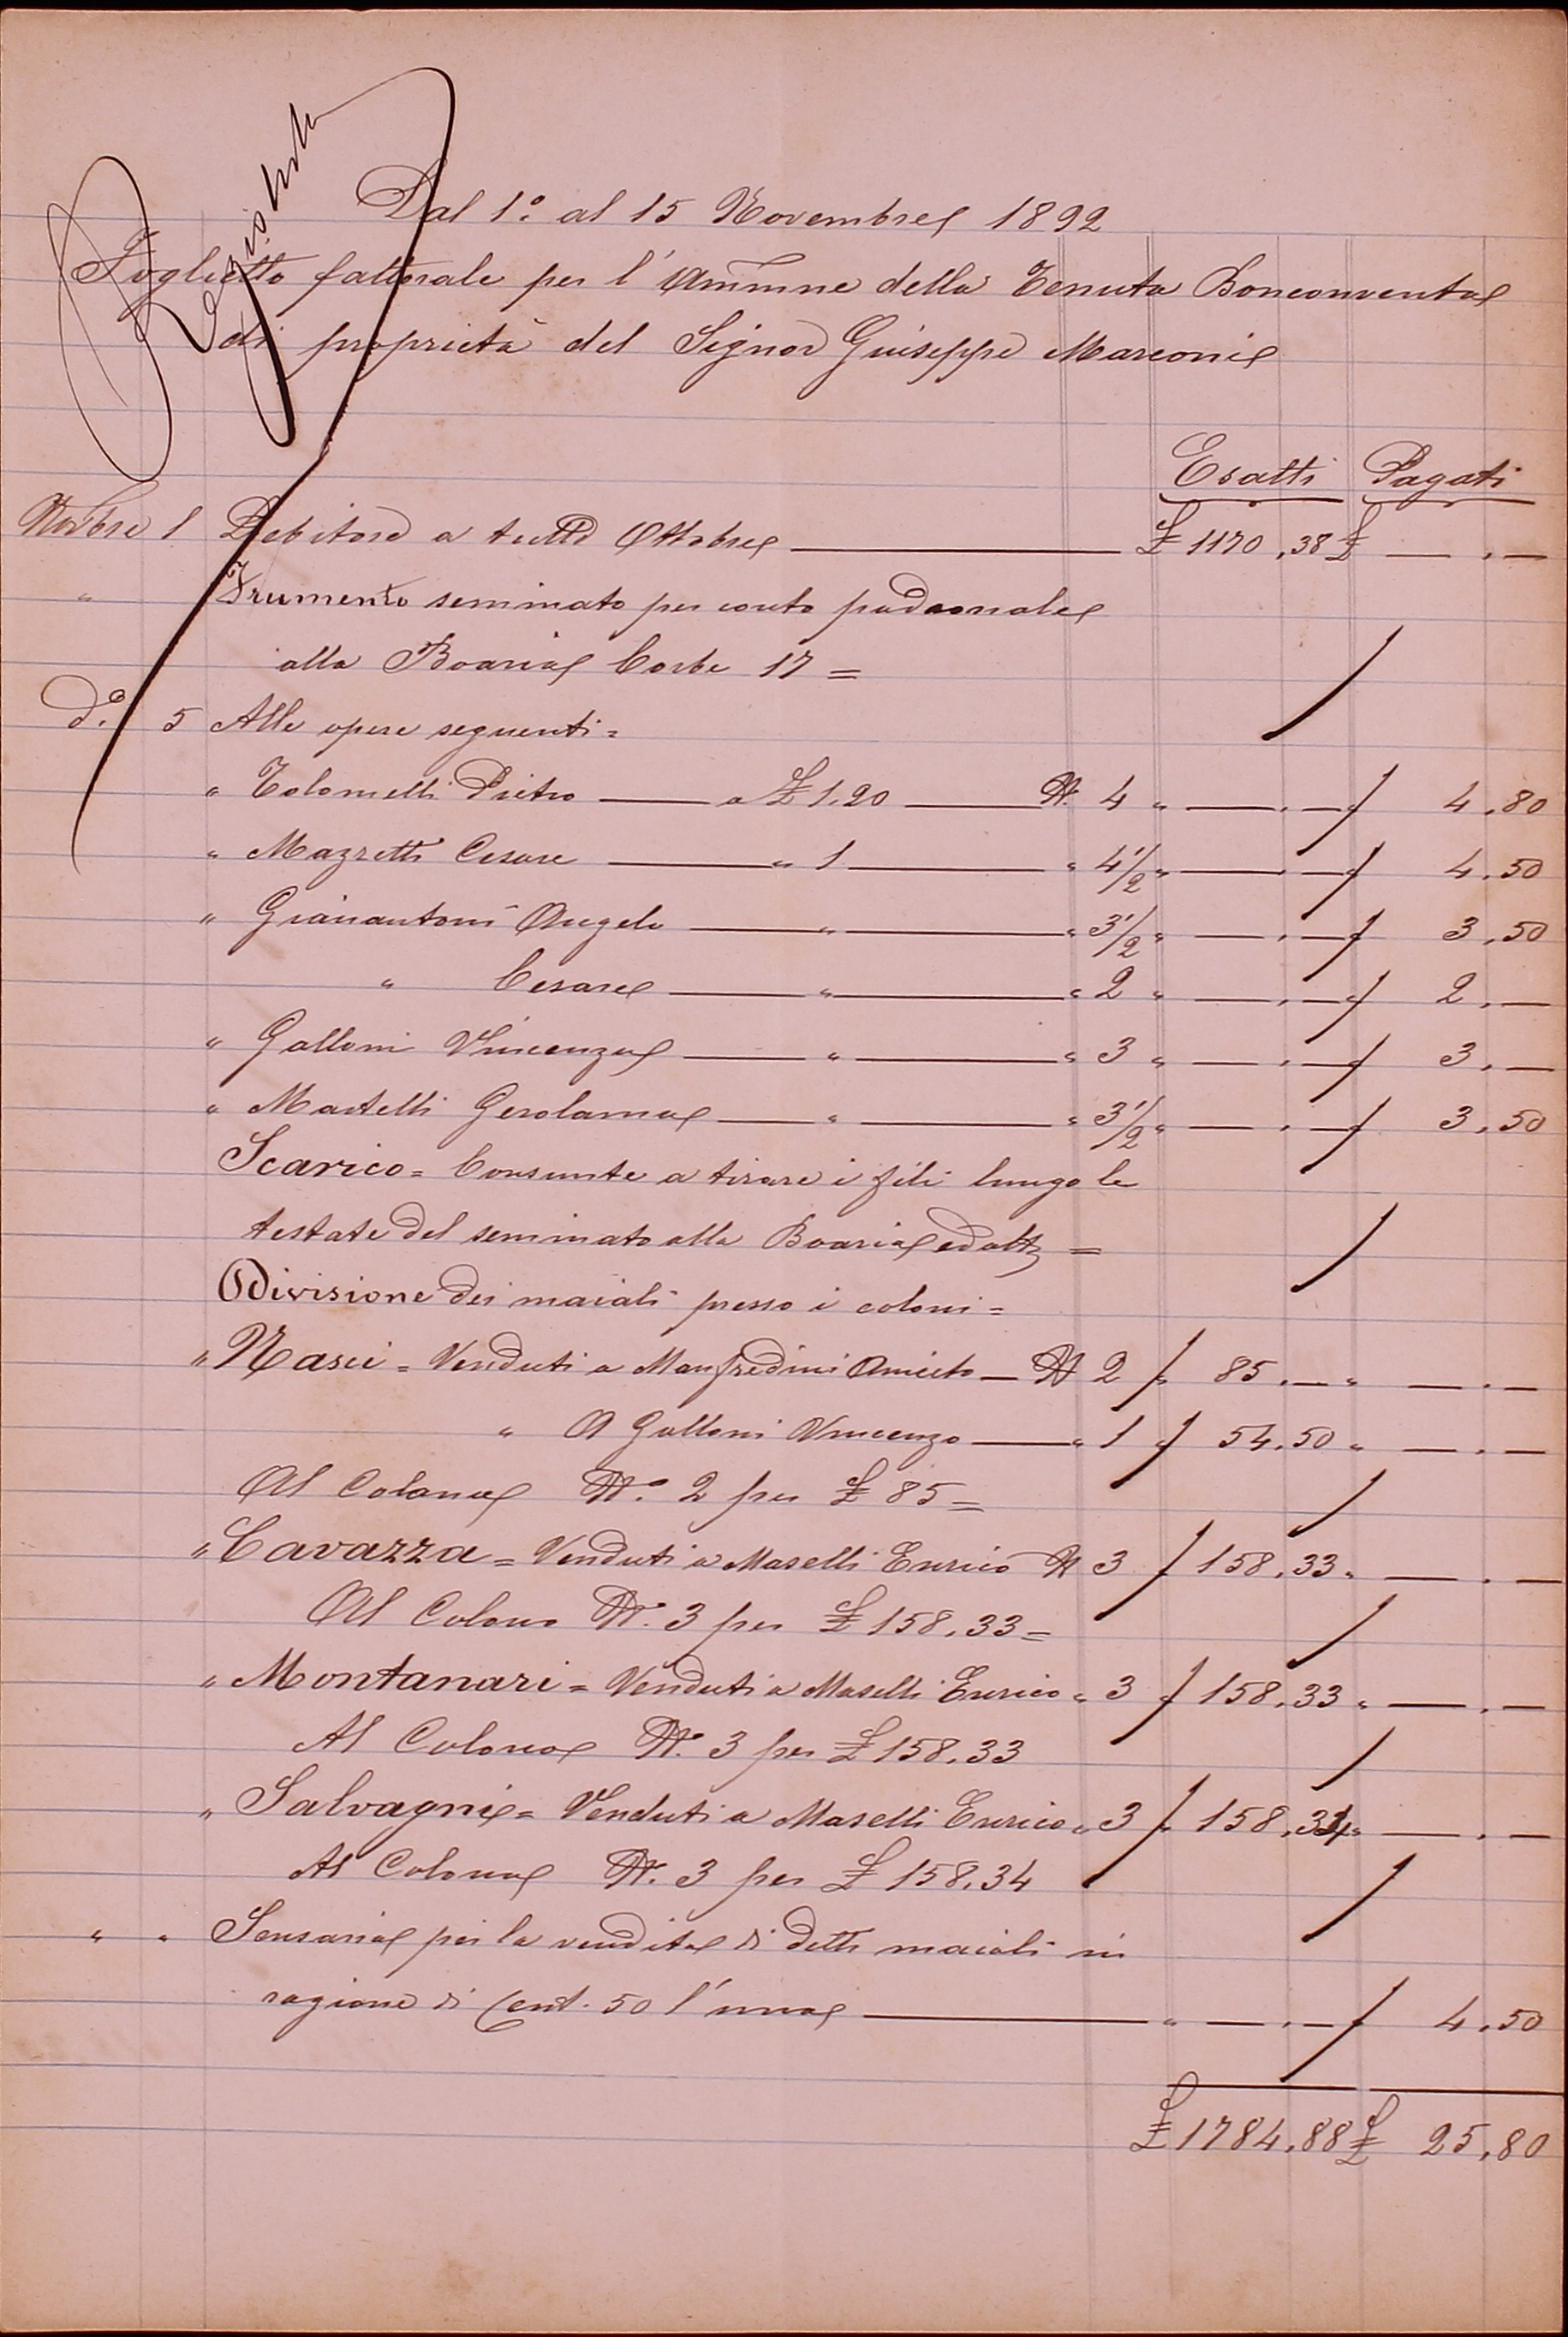 Registrato
Dal 1º al 15 Novembre 1892
Foglietto fattorale per l'Ammne della Tenuta Bonconvento
di proprietà del Signor Giuseppe Marconi
Esatti Pagati
Novbre 1 Debitore a tutto Ottobre £ 1170,38 £ —,—
" Frumento seminato per conto padronale
alla Boaria Corbe 17 =
do. 5 Alle opere seguenti =
" Tolomelli Pietro — a £ 1.20 — N. 4 " —,— " 4,80
" Mazzetti Cesare — " 1 — " 4 1/2 " —,— " 4,50
" Gianantoni Angelo — " — " 3 1/2 " —,— " 3,50
" Cesare — " — " 2 " —,— " 2,—
" Galloni Vincenzo — " — " 3 " —,— " 3,—
" Martelli Gerolamo — " — " 3 1/2 " —,— " 3,50
Scarico = Consunte a tirare i fili lungo le
testate del seminato alla Boaria ed alt =
Divisione dei maiali presso i coloni =
" Nasci = Venduti a Manfredini Aniceto — N 2 " 85,— " —,—
" A Galloni Vincenzo — " 1 " 54,50 " —,—
Al Colono N.º 2 per £ 85 =
" Cavazza = Venduti a Maselli Enrico N 3 " 158,33 " —,—
Al Colono N. 3 per £ 158,33 =
" Montanari = Venduti a Maselli Enrico " 3 " 158,33 " —,—
Al Colono N. 3 per £ 158,33
" Salvagni = Venduti a Maselli Enrico " 3 " 158,34 " —,—
Al Colono N. 3 per £ 158,34
" " Sensaria per la vendita di detti maiali in
ragione di Cent. 50 l'uno — " —,— " 4,50
£ 1784,88 £ 25,80